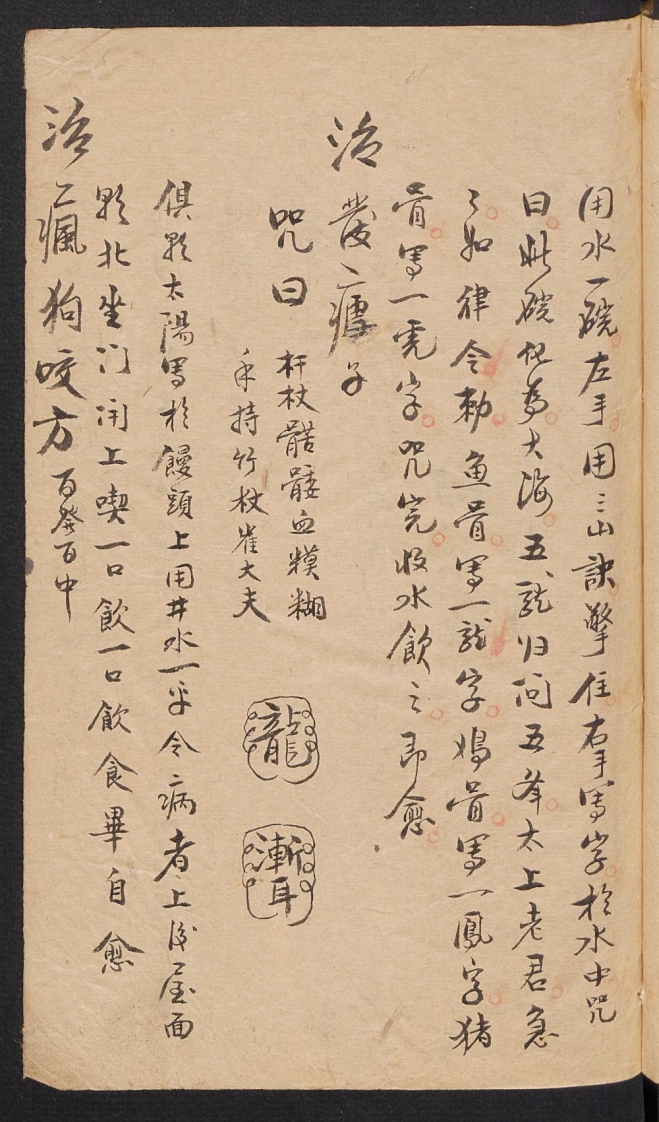 用水一碗左手用三山訣擎住右手写字於水中咒
曰此碗化為大海五龍归位五奉太上老君急
々如律令勅魚骨写一龍字鳩骨写一鳳字猪
骨写一虎字咒完收水飲之即愈
治發瘧子
咒曰
杆杖骷髏血糢糊
手持竹杖崔大夫
龍
漸耳
俱影太陽写於饅頭上用井水一平令病者上後屋面
影北坐门闭上喫一口飲一口飲食畢自愈
治瘋狗咬方百發百中